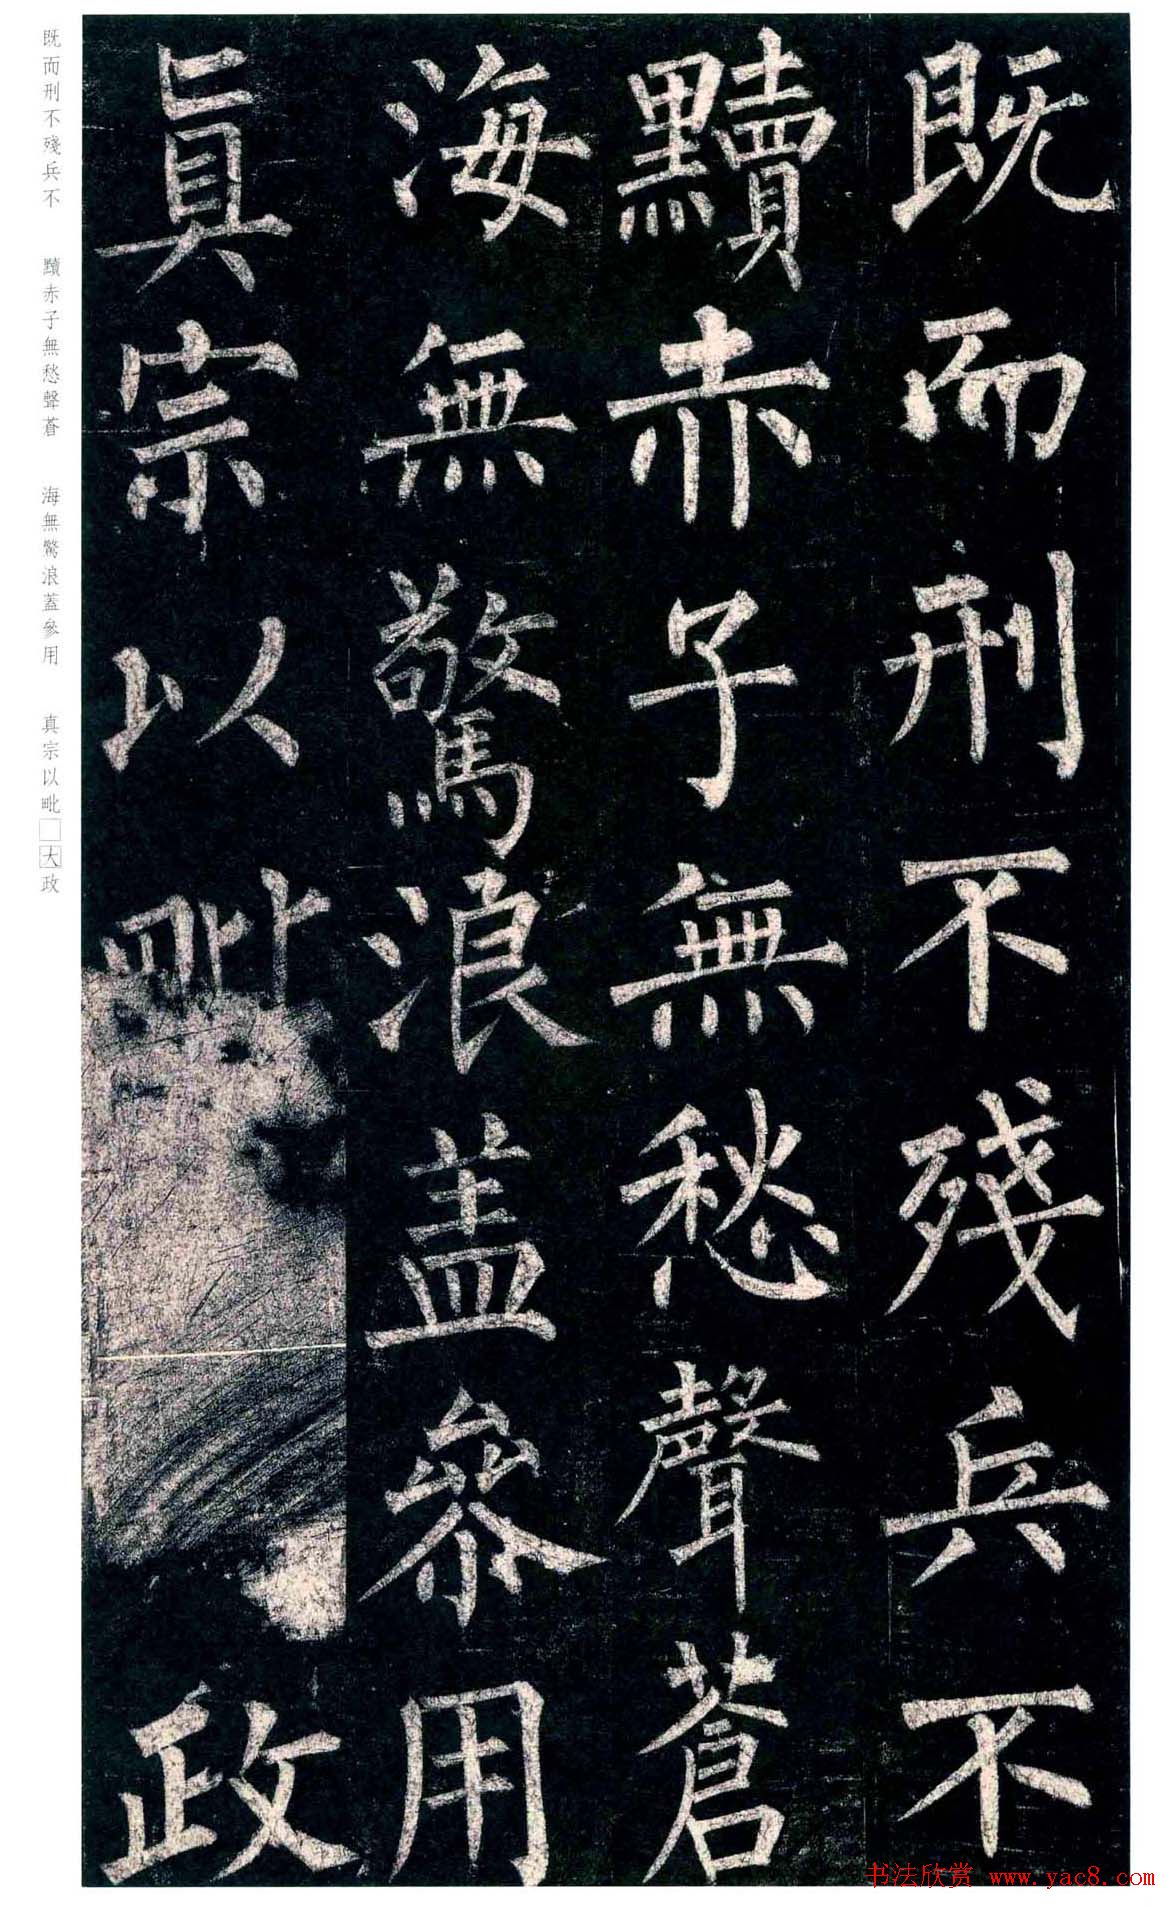 既而刑不殘兵不
黷赤子無愁聲蒼
海無驚浪蓋參用
眞宗以毗政
既而刑不殘兵不 黷赤子無愁聲蒼 海無驚浪蓋參用 真宗以毗□大政
书法欣赏 www.yac8.com